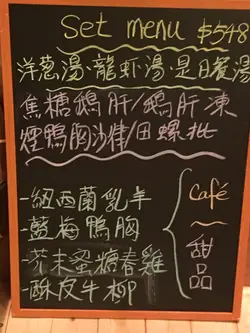 Set menu $548
洋葱湯·龍虾湯·是日餐湯
焦糖鵝肝/鵝肝凍
煙鴨胸沙律/田螺批
-紐西蘭乳羊
-藍梅鴨胸
-芥末蜜糖春雞
-酥皮牛柳
Café
~
甜品